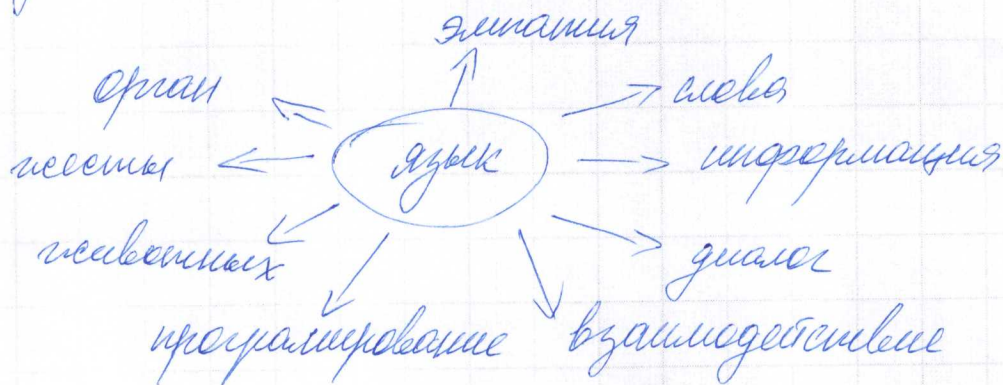 эмпатия
орган
слова
жесты
язык
информация
животных
диалог
програмирование
взаимодействие